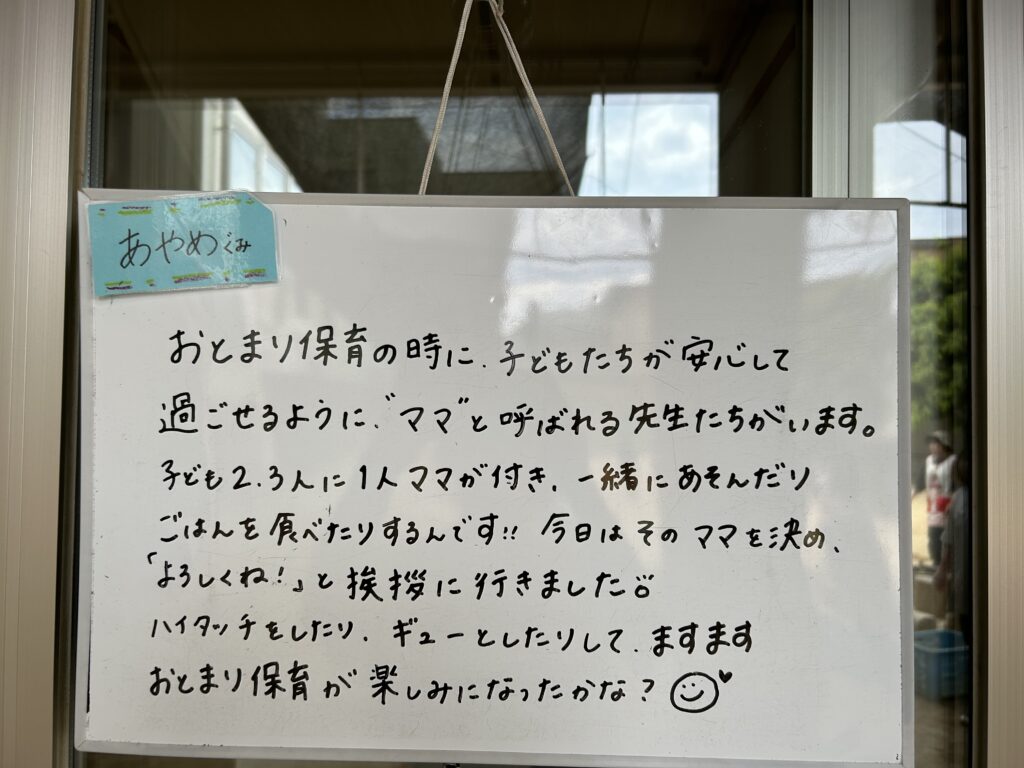 あやめぐみ
おとまり保育の時に、子どもたちが安心して
過ごせるように、"ママ"と呼ばれる先生たちがいます。
子ども2.3人に1人ママが付き、一緒にあそんだり
ごはんを食べたりするんです!! 今日はそのママを決め、
「よろしくね!」と挨拶に行きました
ハイタッチをしたり、ギューとしたりして、ますます
おとまり保育が楽しみになったかな?